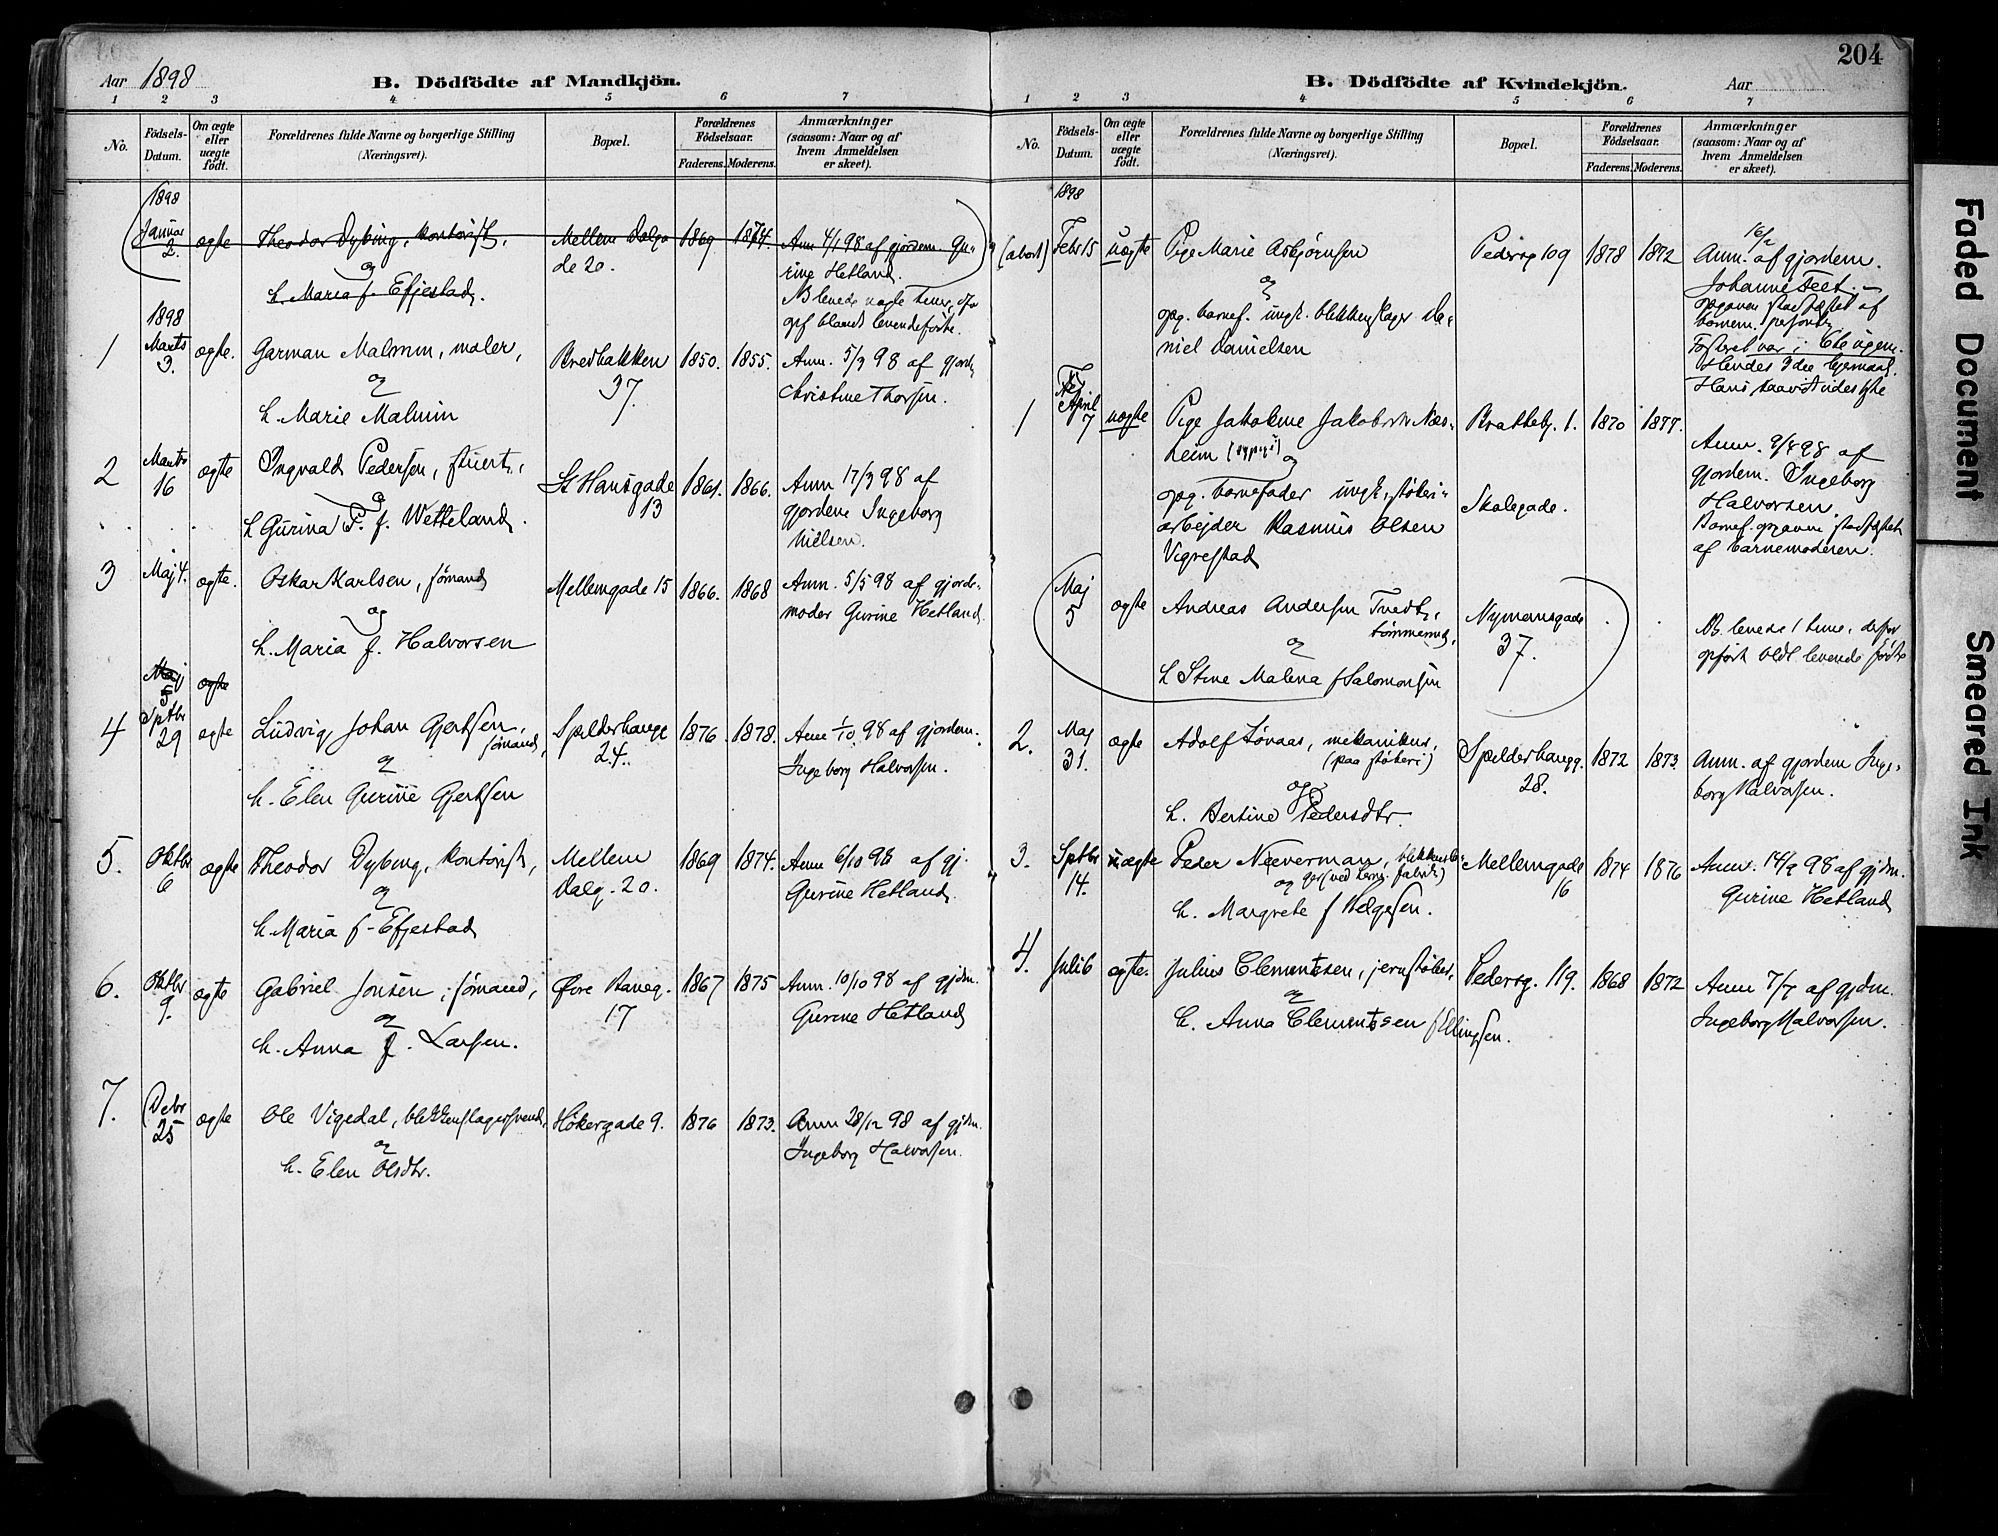 204
Aar 1898
B. Dödfödte af Mandkjön.
1 2 3 4 5 6 7
No.
Födsels-
Datum.
Om ægte
eller
uægte
födt.
Forældrenes fulde Navne og borgerlige Stilling
(Næringsvei).
Bopæl.
Forældrenes
Födselsaar.
Faderens. Moderens.
Anmærkninger
(saasom: Naar og af
hvem Anmeldelsen
er skeet).
1898
Januar 2. ægte Theodor Dybing, kontorist,
og
h. Maria f. Efjestad.
Mellem Dalga
de 20.
1869 1874.
Anm 4/1 98 af gjordem. Gu-
rine Hetland.
NB levede nogle timer,
opf blandt levendefødte.
1898
1 Marts 3. ægte. Garman Malmin, maler,
og
h. Marie Malmin
Bredbakken
37.
1850. 1855.
Anm. 5/3 98 af gjord.
Christine Thorsen.
2 Marts 16 ægte Ingvald Pedersen, stuert,
og
h Gurina P. f. Wetteland.
St Hansgade
13
1861. 1866.
Anm 17/3 98 af
gjordem Ingeborg
Nielsen.
3 Maj 4. ægte. Oskar Karlsen, sømand
og
h. Maria f. Halvorsen
Mellemgade 15
1866. 1868
Anm. 5/5 98 af gjorde-
moder Gurine Hetland.
Maj 5 ægte
4 Sptbr 29 ægte Ludvig Johan Gjertsen,
sømand,
og
h. Elen Gurine Gjertsen
Spilderhaugg
24.
1876. 1878.
Anm 1/10 98 af gjordem.
Ingeborg Halvorsen.
5. Oktbr 6 ægte Theodor Dybing, kontorist,
og
h. Maria f. Efjestad
Mellem
Dalg. 20.
1869 1874.
Anm 6/10 98 af gj.
Gurine Hetland.
6. Oktbr 9. ægte Gabriel Jonsen, sømand,
og
h. Anna f. Larsen.
Øvre Baneg.
17
1867 1875
Anm. 10/10 98 af gjdm.
Gurine Hetland
7. Debr 25 ægte Ole Vigedal, blikkenslagersvend,
og
h. Elen Olsdtr.
Hökergade 9.
1876 1873.
Anm 28/12 98 af gjdm.
Ingeborg Halvorsen.
B. Dödfödte af Kvindekjön.
Aar
1 2 3 4 5 6 7
No.
Födsels-
Datum.
Om ægte
eller
uægte
födt.
Forældrenes fulde Navne og borgerlige Stilling
(Næringsvei).
Bopæl.
Forældrenes
Födselsaar.
Faderens. Moderens.
Anmærkninger
(saasom: Naar og af
hvem Anmeldelsen
er skeet).
1898
(abort) Febr 15 uægte Pige Marie Asbjørnsen
og
opg. barnef. ungk. blikkenslager Da-
niel Danielsen
Pedersg 109
1878 1872
16/2
Anm. af gjordem.
Johanne Feet.
opgaven stadfæstet af
barnem.
Fosteret var i 6te
Hendes 3die leiermaal.
Hans
1 April 7 uægte Pige Jakobine Jakobsen Næs-
heim
og
opg. barnefader ungk, støberi-
arbejder Rasmus Olsen
Vigrestad
Bratteby. 1.
Skolegade.
1870 1877.
Anm. 9/4 98 af
gjordem. Ingeborg
Halvorsen.
Barnef. opgaven stadfæstet
af barnemoderen.
Maj 5 ægte Andreas Andersen Tvedt,
tømmermd.
og
h Stine Malena f Salomonsen
Nymansgade
37.
NB. levede 1 time, derfor
opført bldt levende fødte
2. Maj 31. ægte Adolf Løvaas, mekanikus,
(paa støberi)
og
h. Bertine Pedersdtr.
Spilderhaugg.
28.
1872 1873
Anm. af gjordem Inge-
borg Halvorsen.
3. Sptbr 14. uægte Peder Næverman,
og
h. Margrete f Helgesen.
Mellemgade
16
1874 1876
Anm. 14/9 98 af gjdm.
Gurine Hetland
4. Juli 6 ægte. Julius Clementsen, jernstøber,
og
h. Anna Clementsen f Ellingsen.
Pedersg. 119.
1868 1872
Anm 7/7 af gjdm.
Ingeborg Halvorsen.
Faded Document
Smeared Ink